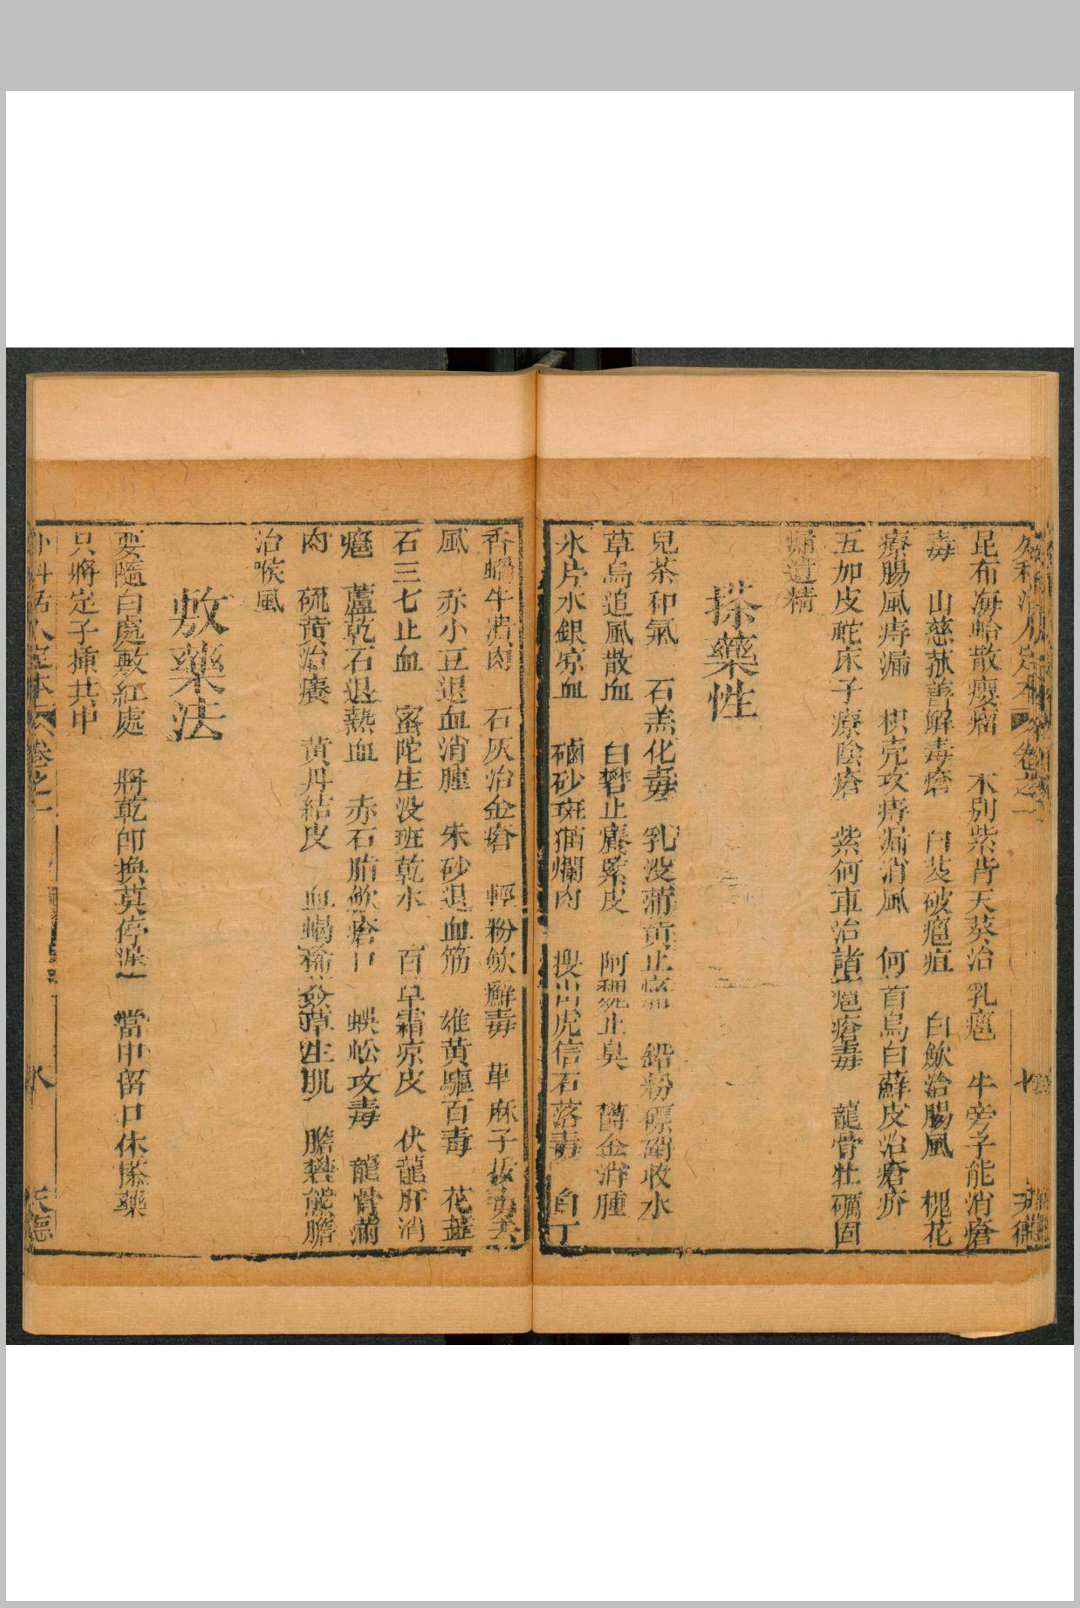 昆布海蛤散癭瘤　木別紫背天葵治乳疽　牛旁子能消瘡
毒　山慈菰善解毒瘡　白芨破疽疽　白歛治腸風　槐花
療腸風痔漏　枳壳攻痔漏消風　何首烏白蘚皮治瘡疥
五加皮蛇床子療陰瘡　紫何車治諸疽瘡毒　龍骨牡礪固
歸遺精
搽藥性
兒茶和氣　石羔化毒　乳没蒲黄止痛　鉛粉硝收水
草烏追風散血　白礬止癢緊皮　阿魏止臭　欝金消腫
氷片水銀凉血　硇砂斑猫爛肉　虎信石落毒　白丁
香蝸牛潰肉　石灰治金瘡　輕粉歛癬毒　萆麻子拔毒
風　赤小豆退血消腫　朱砂退血筋　雄黄驅百毒　花蕋
石三七止血　蜜陀生没班乾水　百早霜凉皮　伏龍肝消
疽　蘆乾石退熱血　赤石脂歛瘡口　蜈蚣攻毒　龍骨滿
肉　硫黄治癢　黄丹結皮　血竭草生肌　膽礬熊膽
治喉風
敷藥法
要隨白處敷紅處　將乾即換莫停　當中留口休搽藥
只將定子揷其中
外科活人定本　卷之一